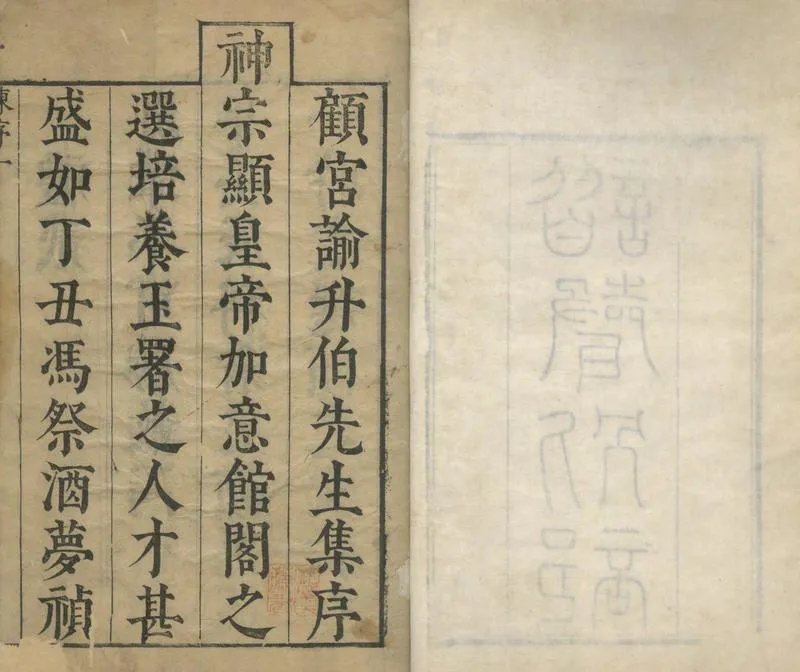 顧宮諭升伯先生集序
神宗顯皇帝加意館閣之
選培養玉署之人才甚
盛如丁丑馮祭酒夢禎
陳序一